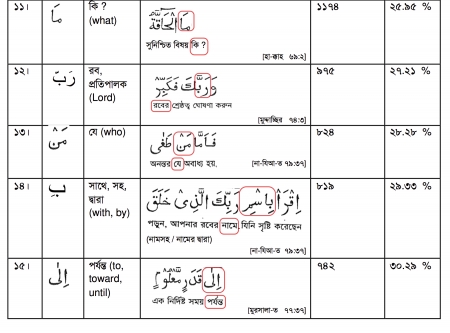 ১১।
مَا
কি ?
(what)
مَا الْحَاقَّةُ
সুনিশ্চিত বিষয় কি ?
[হা-ক্কাহ ৬৯:২]
১১৭৪
২৫.৯৫ %
১২।
رَبّ
রব,
প্রতিপালক
(Lord)
وَرَبَّكَ فَكَبِّرْ
রবের শ্রেষ্ঠত্ব ঘোষণা করুন
[মুদ্দাচ্ছির ৭৪:৩]
৯৭৫
২৭.২১ %
১৩।
مَنْ
যে (who)
فَاَمَّا مَنْ طَغٰى
অনন্তর যে অবাধ্য হয়,
[না-যিআ-ত ৭৯:৩৭]
৮২৪
২৮.২৮ %
১৪।
بِ
সাথে, সহ,
দ্বারা
(with, by)
اِقْرَاْ بِاسْمِ رَبِّكَ الَّذِىْ خَلَقَ
পড়ুন, আপনার রবের নামে, যিনি সৃষ্টি করেছেন
(নামসহ / নামের দ্বারা)
[না-যিআ-ত ৭৯:৩৭]
৮১৯
২৯.৩৩ %
১৫।
اِلٰى
পর্যন্ত (to,
toward,
until)
اِلٰى قَدَرٍ مَّعْلُوْمٍ
এক নির্দিষ্ট সময় পর্যন্ত
[মুরসালা-ত ৭৭:৩৭]
৭৪২
৩০.২৯ %